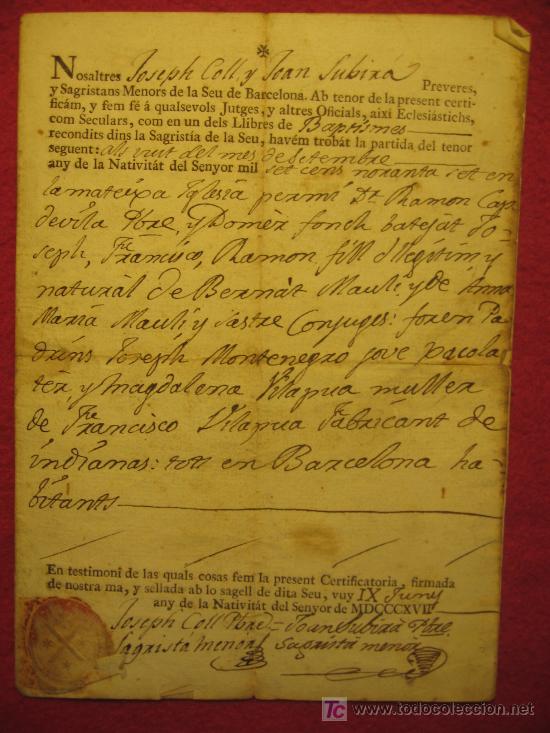 ✠
Nosaltres Joseph Coll, y Joan Subirá Preveres,
y Sagristans Menors de la Seu de Barcelona. Ab tenor de la present certi-
ficám, y fem fé á qualsevols Jutges, y altres Oficials, aixi Eclesiástichs,
com Seculars, com en un dels Llibres de Baptismes
recondits dins la Sagristía de la Seu, havém trobát la partida del tenor
seguent: als vuit del mes de Setembre
any de la Nativitát del Senyor mil set cens noranta set en
la mateixa Iglesia per mi Dr. Ramon Cap
devila Pbre, y Domer fonch bateját Jo-
seph, Francisco, Ramon fill llegitim y
naturál de Bernát Mauli y de Anna
Maria Mauli y Sastre Conjuges: foren Pa-
drins Joseph Montenegro jove xacola-
tér, y Magdalena Vilapua muller
de Francisco Vilapua Fabricant de
indianas: tots en Barcelona ha-
bitants
En testimoni de las quals cosas fem la present Certificatoria, firmada
de nostra ma, y sellada ab lo sagell de dita Seu, vuy IX Juny
any de la Nativitát del Senyor de MDCCCXVII
Joseph Coll Pbre = Joan Subirá Pbre.
Sagristá menor Sagristá menor
TC todocoleccion
www.todocoleccion.net